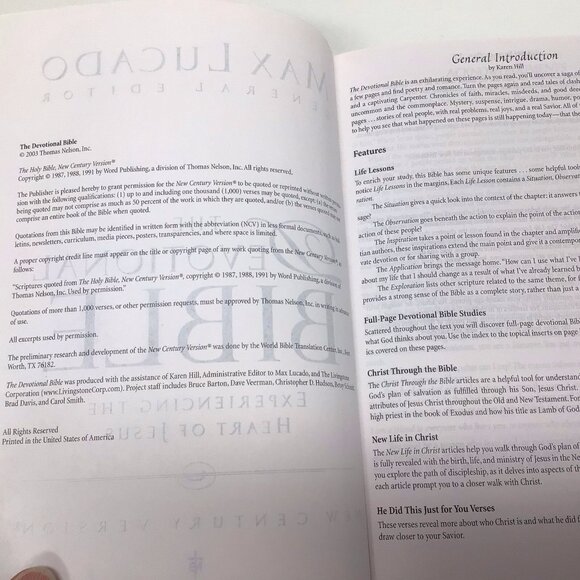 MAX LUCADO
GENERAL EDITOR
The Devotional Bible
© 2003 Thomas Nelson, Inc.
The Holy Bible, New Century Version®
Copyright © 1987, 1988, 1991 by Word Publishing, a division of Thomas Nelson, Inc. All rights reserved.
The Publisher is pleased hereby to grant permission for the New Century Version® to be quoted or reprinted without written permis-
sion with the following qualifications: (1) up to and including one thousand (1,000) verses may be quoted, except (a) the verses
being quoted may not comprise as much as 50 percent of the work in which they are quoted, and/or (b) the verses quoted may not
comprise an entire book of the Bible when quoted.
Quotations from this Bible may be identified in written form with the abbreviation (NCV) in less formal documents such as bul-
letins, newsletters, curriculum, media pieces, posters, transparencies, and where space is limited.
A proper copyright credit line must appear on the title or copyright page of any work quoting from the New Century Version® as
follows:
"Scriptures quoted from The Holy Bible, New Century Version®, copyright © 1987, 1988, 1991 by Word Publishing, a division of
Thomas Nelson, Inc. Used by permission."
Quotations of more than 1,000 verses, or other permission requests, must be approved by Thomas Nelson, Inc. in writing in advance
of use.
All excerpts used by permission.
The preliminary research and development of the New Century Version® was done by the World Bible Translation Center, Inc., Fort
Worth, TX 76182.
The Devotional Bible was produced with the assistance of Karen Hill, Administrative Editor to Max Lucado, and The Livingstone
Corporation (www.LivingstoneCorp.com). Project staff includes Bruce Barton, Dave Veerman, Christopher D. Hudson, Betsy
Brad Davis, and Carol Smith.
All Rights Reserved
Printed in the United States of America
THE
DEVOTIONAL
BIBLE
EXPERIENCING THE
HEART OF JESUS
NEW CENTURY VERSION
General Introduction
by Karen Hill
The Devotional Bible is an exhilarating experience. As you read, you'll uncover a saga of
a few pages and find poetry and romance. Turn the pages again and read tales of clashes
and a captivating Carpenter. Chronicles of faith, miracles, misdeeds, and good deeds
uncommon and the commonplace. Mystery, suspense, intrigue, drama, humor,
pages . . . stories of real people, with real problems, real joys, and a real Savior. All of
to help you see that what happened on these pages is still happening today—that the
Features
Life Lessons
To enrich your study, this Bible has some unique features . . . some helpful tools
notice Life Lessons in the margins. Each Life Lesson contains a Situation, Observation,
ration.
The Situation gives a quick look into the context of the chapter: it answers
sage?
The Observation goes beneath the action to explain the point of the action
action of these people?
The Inspiration takes a point or lesson found in the chapter and amplifies
tian authors, these inspirations extend the main point and give it a contemporary
vate devotion or for sharing with a group.
The Application brings the message home. "How can I use what I've
about my life that I should change as a result of what I've already learned
The Exploration lists other scripture related to the same theme, for
provides a strong sense of the Bible as a complete story, rather than just a
Full-Page Devotional Bible Studies
Scattered throughout the text you will discover full-page devotional Bible
what God thinks about you. Use the index to the topical inserts on page
ics covered on these pages.
Christ Through the Bible
The Christ Through the Bible articles are a helpful tool for understanding
God's plan of salvation as fulfilled through his Son, Jesus Christ.
attributes of Jesus Christ throughout the Old and New Testament. For
high priest in the book of Exodus and how his title as Lamb of God
New Life in Christ
The New Life in Christ articles help you walk through God's plan of
is fully revealed with the birth, life, and ministry of Jesus in the New
you explore the path of discipleship, as it delves into aspects of the
each article prompt you to a closer walk with Christ.
He Did This Just for You Verses
These verses reveal more about who Christ is and what he did
draw closer to your Savior.